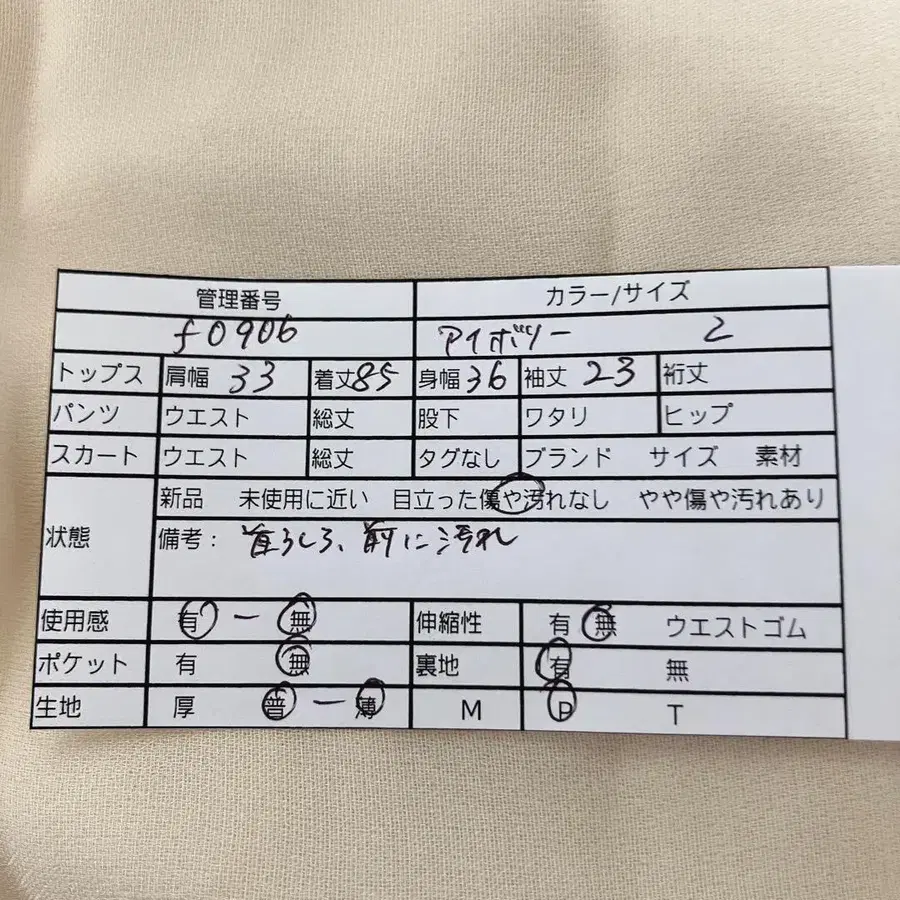 管理番号 カラー/サイズ
f0906 アイボリー 2
トップス 肩幅 33 着丈 85 身幅 36 袖丈 23 裄丈
パンツ ウエスト 総丈 股下 ワタリ ヒップ
スカート ウエスト 総丈 タグなし ブランド サイズ 素材
新品 未使用に近い 目立った傷や汚れなし やや傷や汚れあり
状態
備考: 首うしろ、前に汚れ
使用感 有 ー 無 伸縮性 有 無 ウエストゴム
ポケット 有 無 裏地 有 無
生地 厚 普 ー 薄 M P T